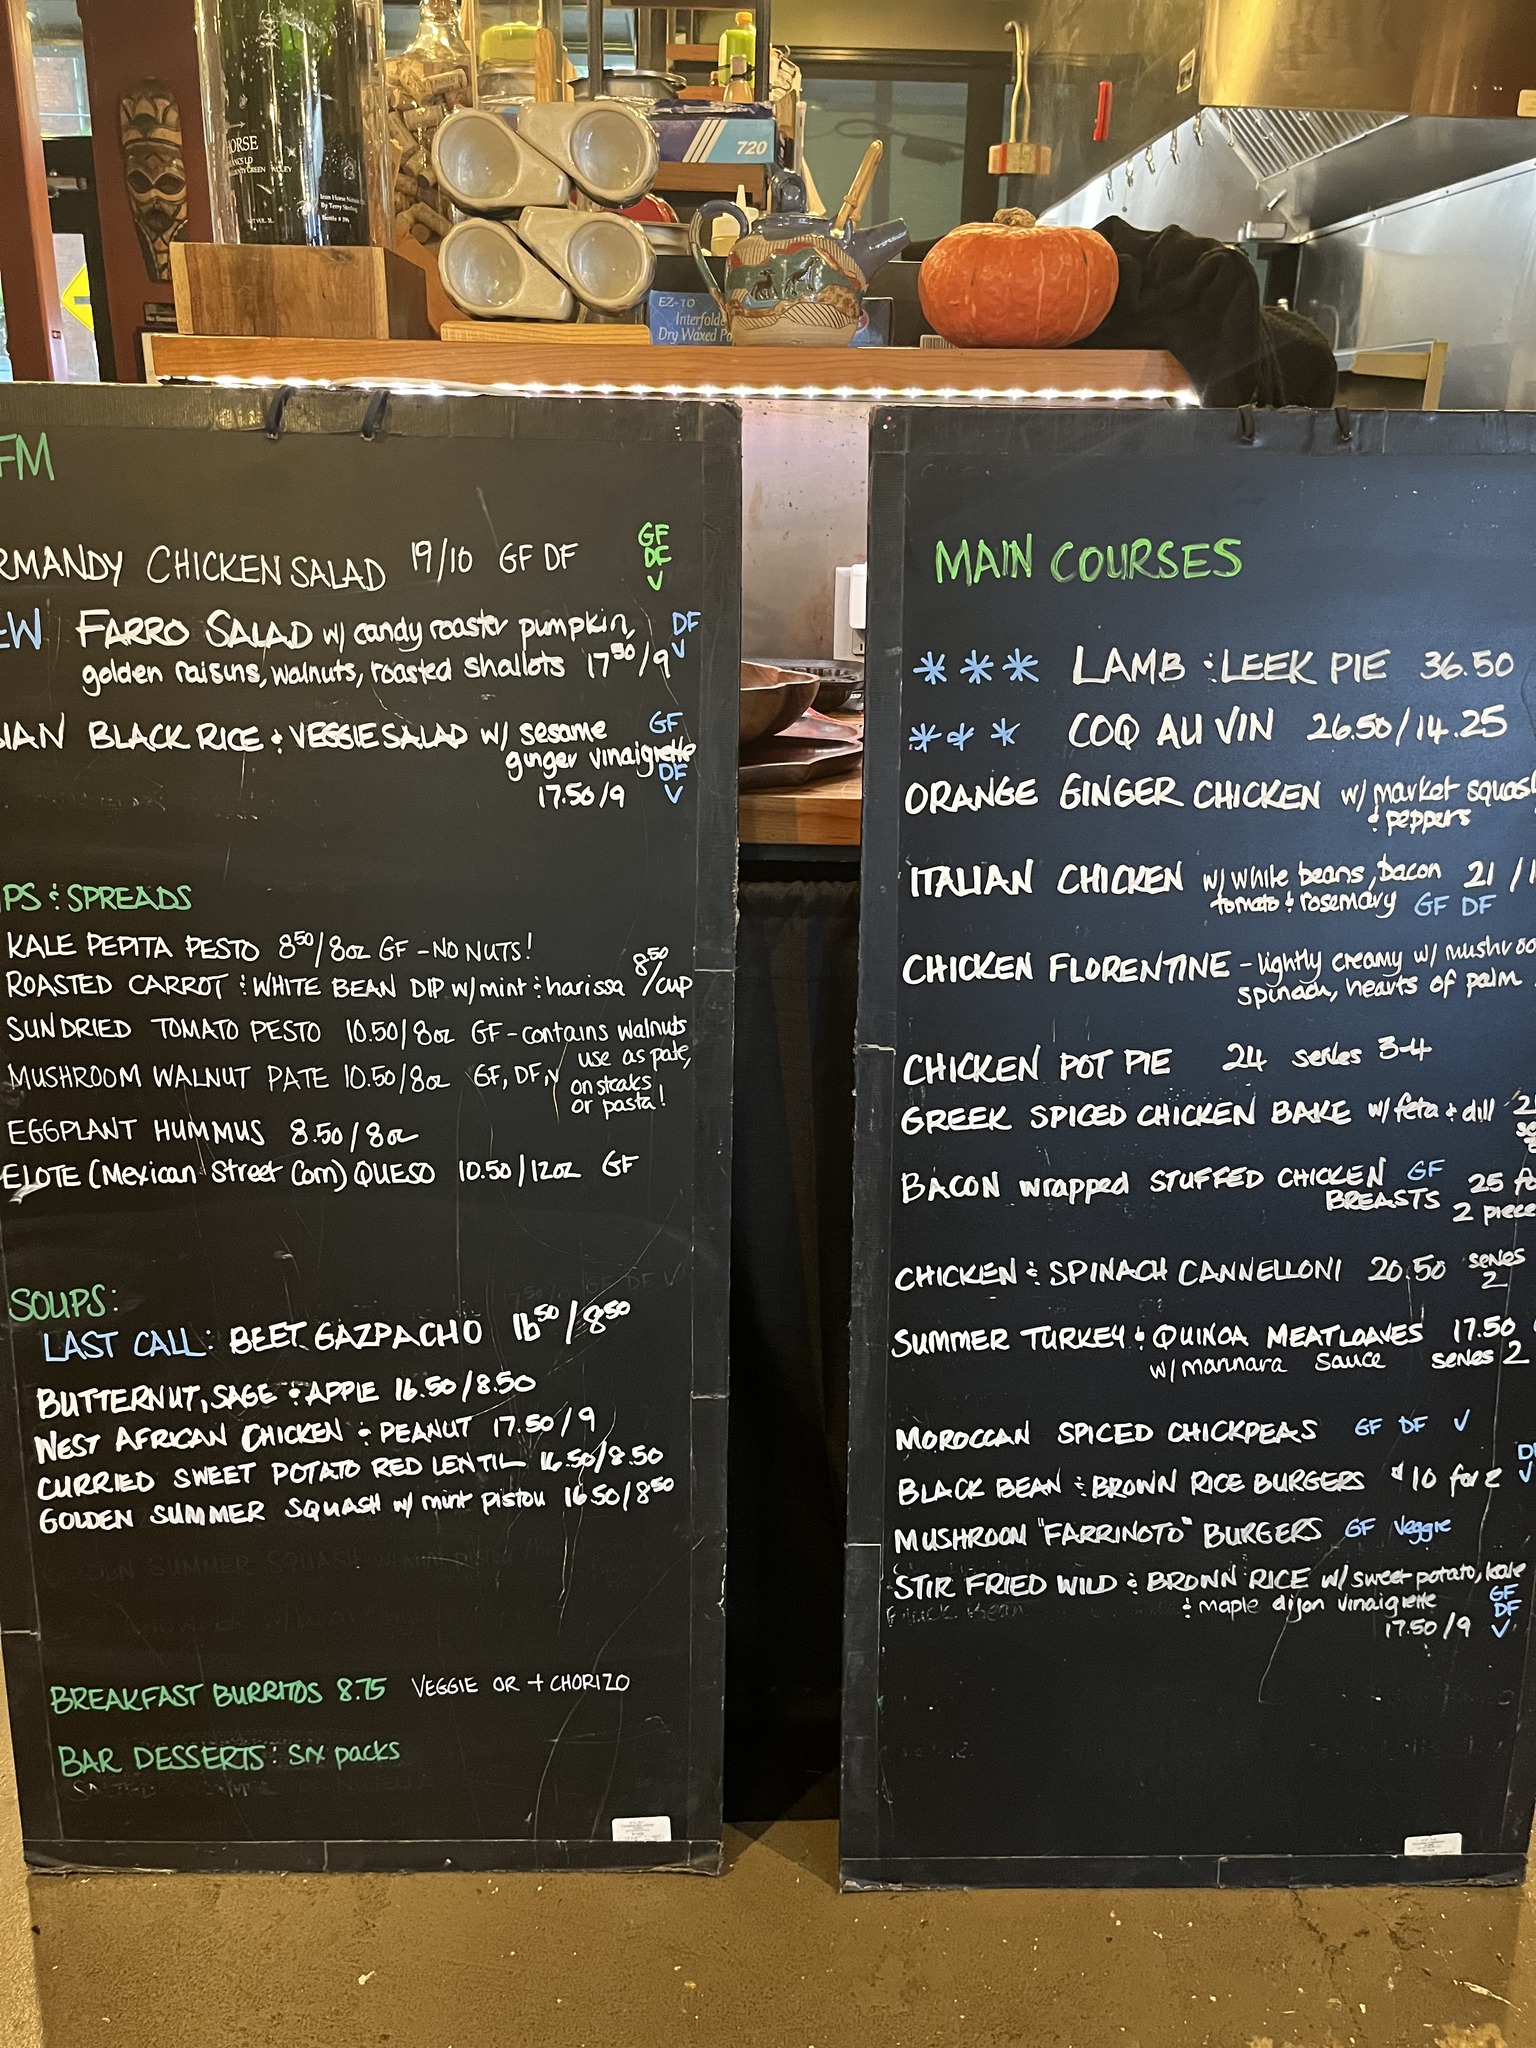 720
EZ-10
Interfolde
Dry Waxed Pa
ORSE
FM
RMANDY CHICKEN SALAD 19/10 GF DF
GF
DF
V
EW FARRO SALAD w/ candy roaster pumpkin, DF
golden raisins, walnuts, roasted shallots 17⁵⁰/9 V
SIAN BLACK RICE & VEGGIE SALAD w/ sesame GF
ginger vinaigrette
DF
17.50/9 V
PS & SPREADS
KALE PEPITA PESTO 8⁵⁰/8oz GF - NO NUTS!
ROASTED CARROT & WHITE BEAN DIP w/ mint & harissa 8⁵⁰/cup
SUNDRIED TOMATO PESTO 10.50/8oz GF - contains walnuts
MUSHROOM WALNUT PATE 10.50/8oz GF, DF, V use as pate,
on steaks
or pasta!
EGGPLANT HUMMUS 8.50/8oz
ELOTE (Mexican Street Corn) QUESO 10.50/12oz GF
SOUPS:
LAST CALL: BEET GAZPACHO 16⁵⁰/8⁵⁰
BUTTERNUT, SAGE & APPLE 16.50/8.50
WEST AFRICAN CHICKEN & PEANUT 17.50/9
CURRIED SWEET POTATO RED LENTIL 16.50/8.50
GOLDEN SUMMER SQUASH w/ mint pistou 16.50/8⁵⁰
BREAKFAST BURRITOS 8.75 VEGGIE OR + CHORIZO
BAR DESSERTS: six packs
MAIN COURSES
*** LAMB & LEEK PIE 36.50
*** COQ AU VIN 26.50/14.25
ORANGE GINGER CHICKEN w/ market squas
& peppers
ITALIAN CHICKEN w/ white beans, bacon 21/1
tomato & rosemary GF DF
CHICKEN FLORENTINE - lightly creamy w/ mushroo
spinach, hearts of palm
CHICKEN POT PIE 24 serves 3-4
GREEK SPICED CHICKEN BAKE w/ feta & dill
BACON wrapped STUFFED CHICKEN GF
BREASTS 25 fo
2 piece
CHICKEN & SPINACH CANNELLONI 20.50 serves
2
SUMMER TURKEY & QUINOA MEATLOAVES 17.50
w/ marinara sauce serves 2
MOROCCAN SPICED CHICKPEAS GF DF V
BLACK BEAN & BROWN RICE BURGERS $10 for 2 V
MUSHROOM "FARRINOTO" BURGERS GF Veggie
STIR FRIED WILD & BROWN RICE w/ sweet potato, kale
& maple dijon vinaigrette GF
DF
17.50/9 V